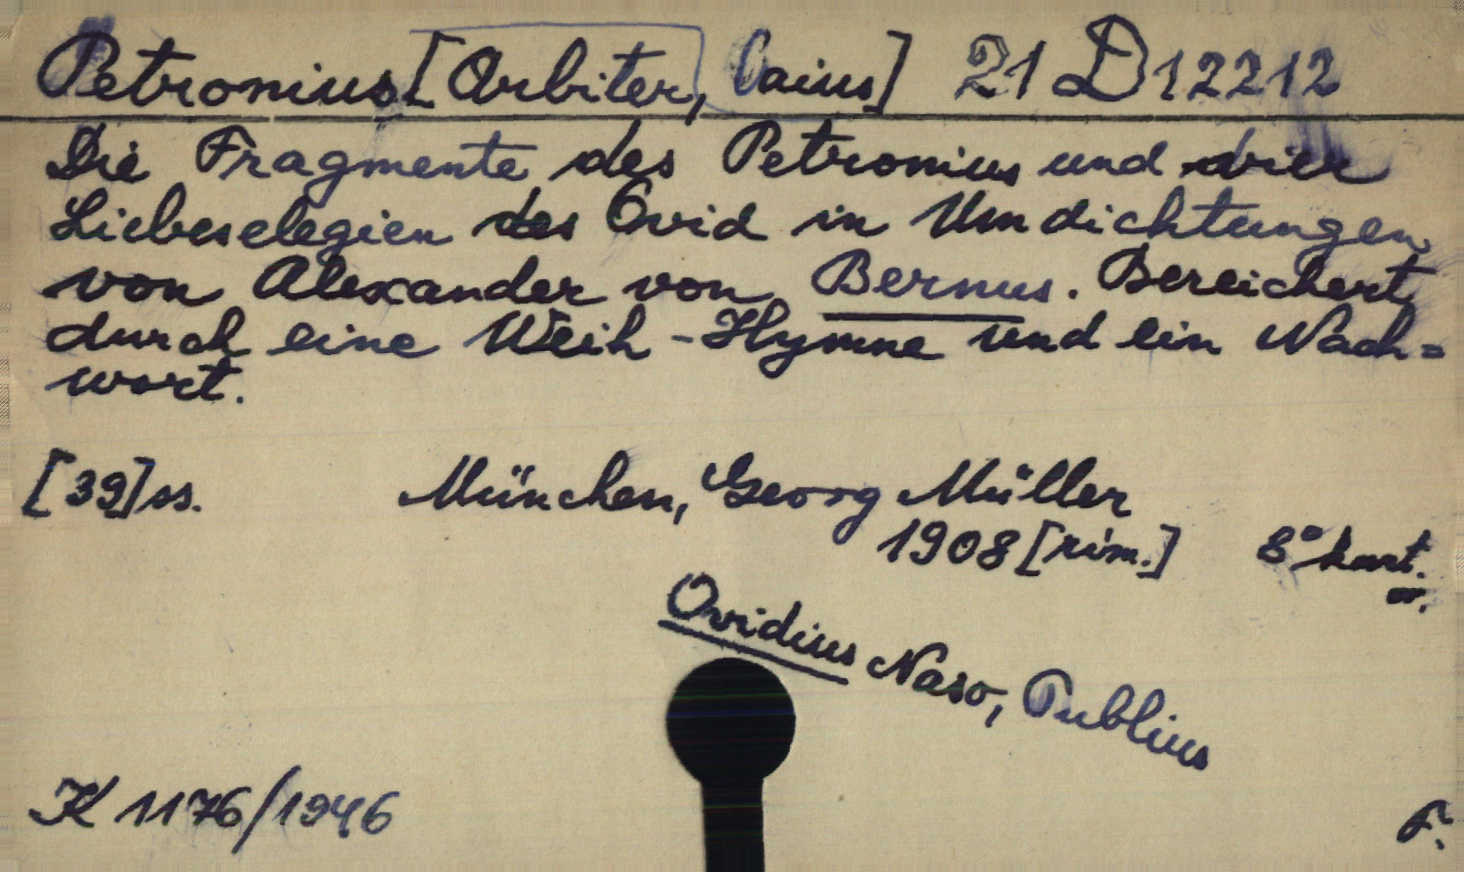 Petronius [Arbiter, Caius] 21 D 12212
Die Fragmente des Petronius und vier
Liebeselegien des Ovid in Umdichtungen
von Alexander von Bernus. Bereichert
durch eine Weih-Hymne und ein Nach=
wort.
[39] ss. München, Georg Müller
1908 [rim.] 8° kart.
or.
Ovidius Naso, Publius
K 1176/1946
F.